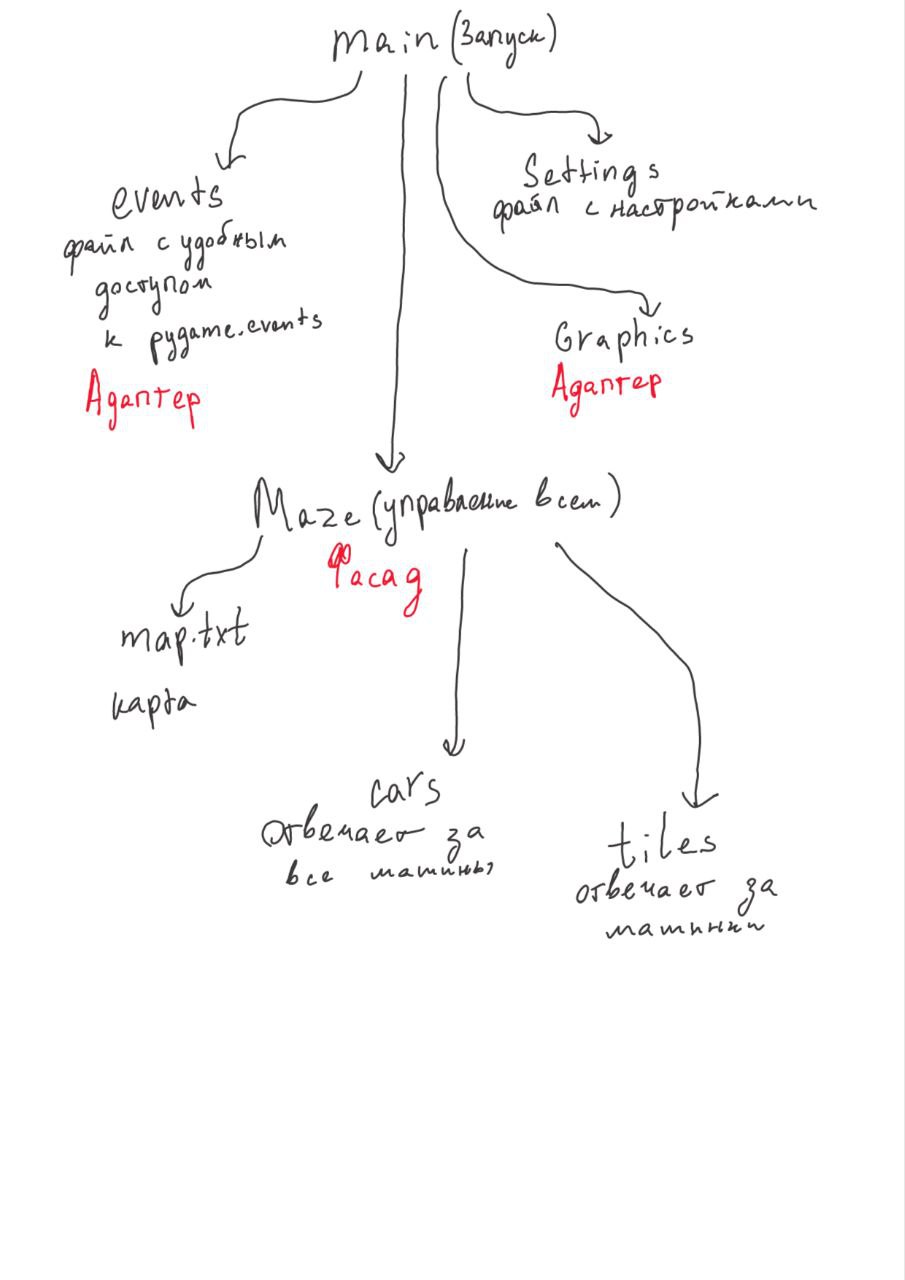 main (Запуск)
events
файл с удобным
доступом
к pygame.events
Адаптер
Settings
файл с настройками
Graphics
Адаптер
Maze (управление всем)
Фасад
map.txt
карта
cars
отвечает за
все машины
tiles
отвечает за
машинки